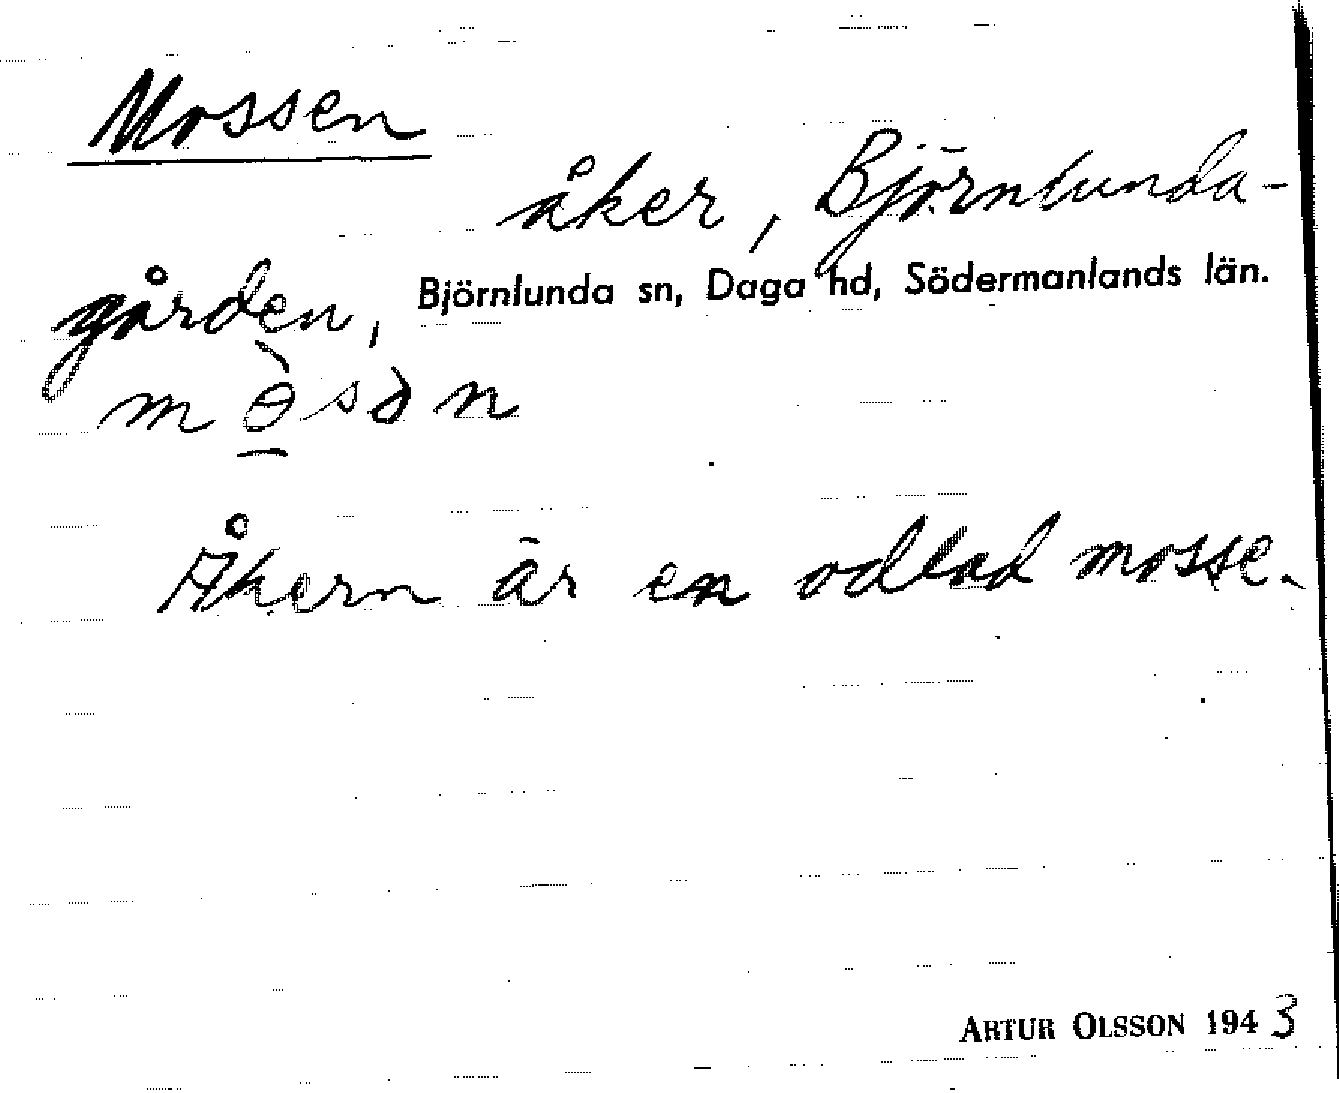 Mossen
åker, Björnlunda-
gården, Björnlunda sn, Daga hd, Södermanlands län.
mɵ̀sən
Åkern är en odlad mosse.
ARTUR OLSSON 1943